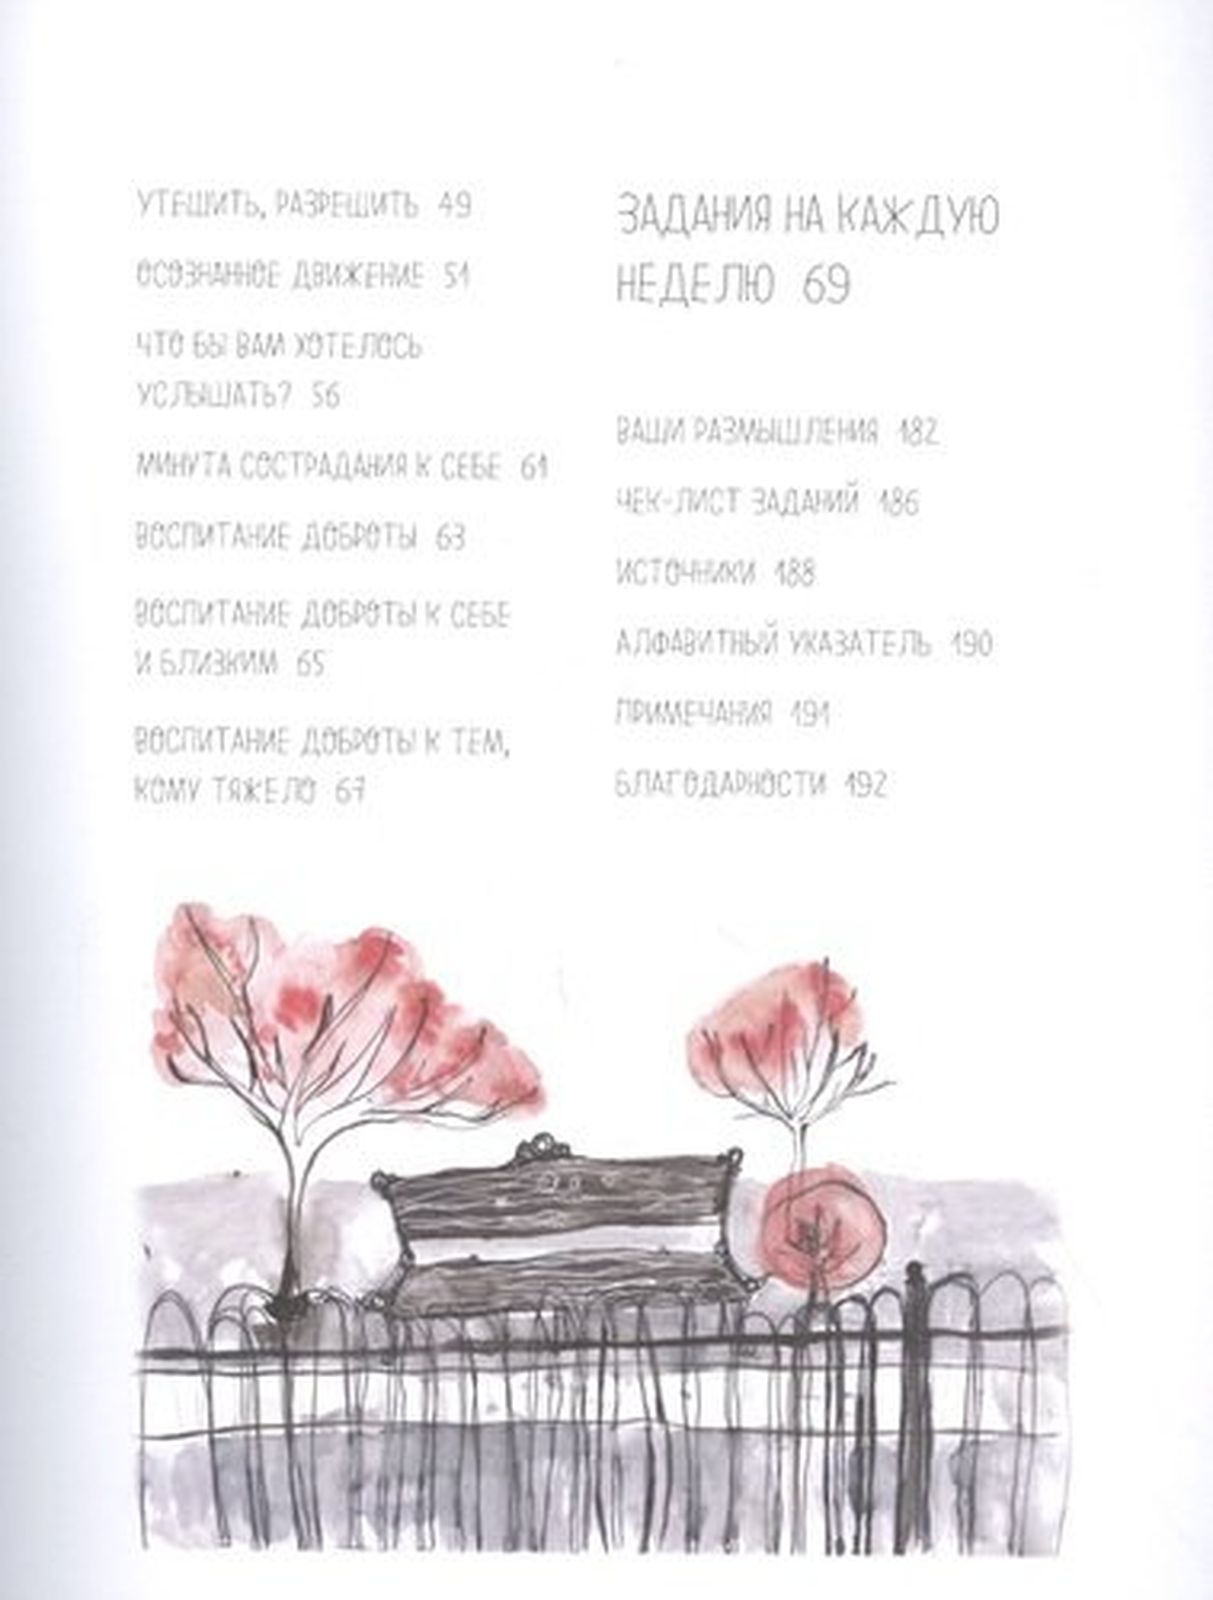 УТЕШИТЬ, РАЗРЕШИТЬ 49
ОСОЗНАННОЕ ДВИЖЕНИЕ 51
ЧТО БЫ ВАМ ХОТЕЛОСЬ
УСЛЫШАТЬ? 56
МИНУТА СОСТРАДАНИЯ К СЕБЕ 61
ВОСПИТАНИЕ ДОБРОТЫ 63
ВОСПИТАНИЕ ДОБРОТЫ К СЕБЕ
И БЛИЗКИМ 65
ВОСПИТАНИЕ ДОБРОТЫ К ТЕМ,
КОМУ ТЯЖЕЛО 67
ЗАДАНИЯ НА КАЖДУЮ
НЕДЕЛЮ 69
ВАШИ РАЗМЫШЛЕНИЯ 182
ЧЕК-ЛИСТ ЗАДАНИЙ 186
ИСТОЧНИКИ 188
АЛФАВИТНЫЙ УКАЗАТЕЛЬ 190
ПРИМЕЧАНИЯ 191
БЛАГОДАРНОСТИ 192